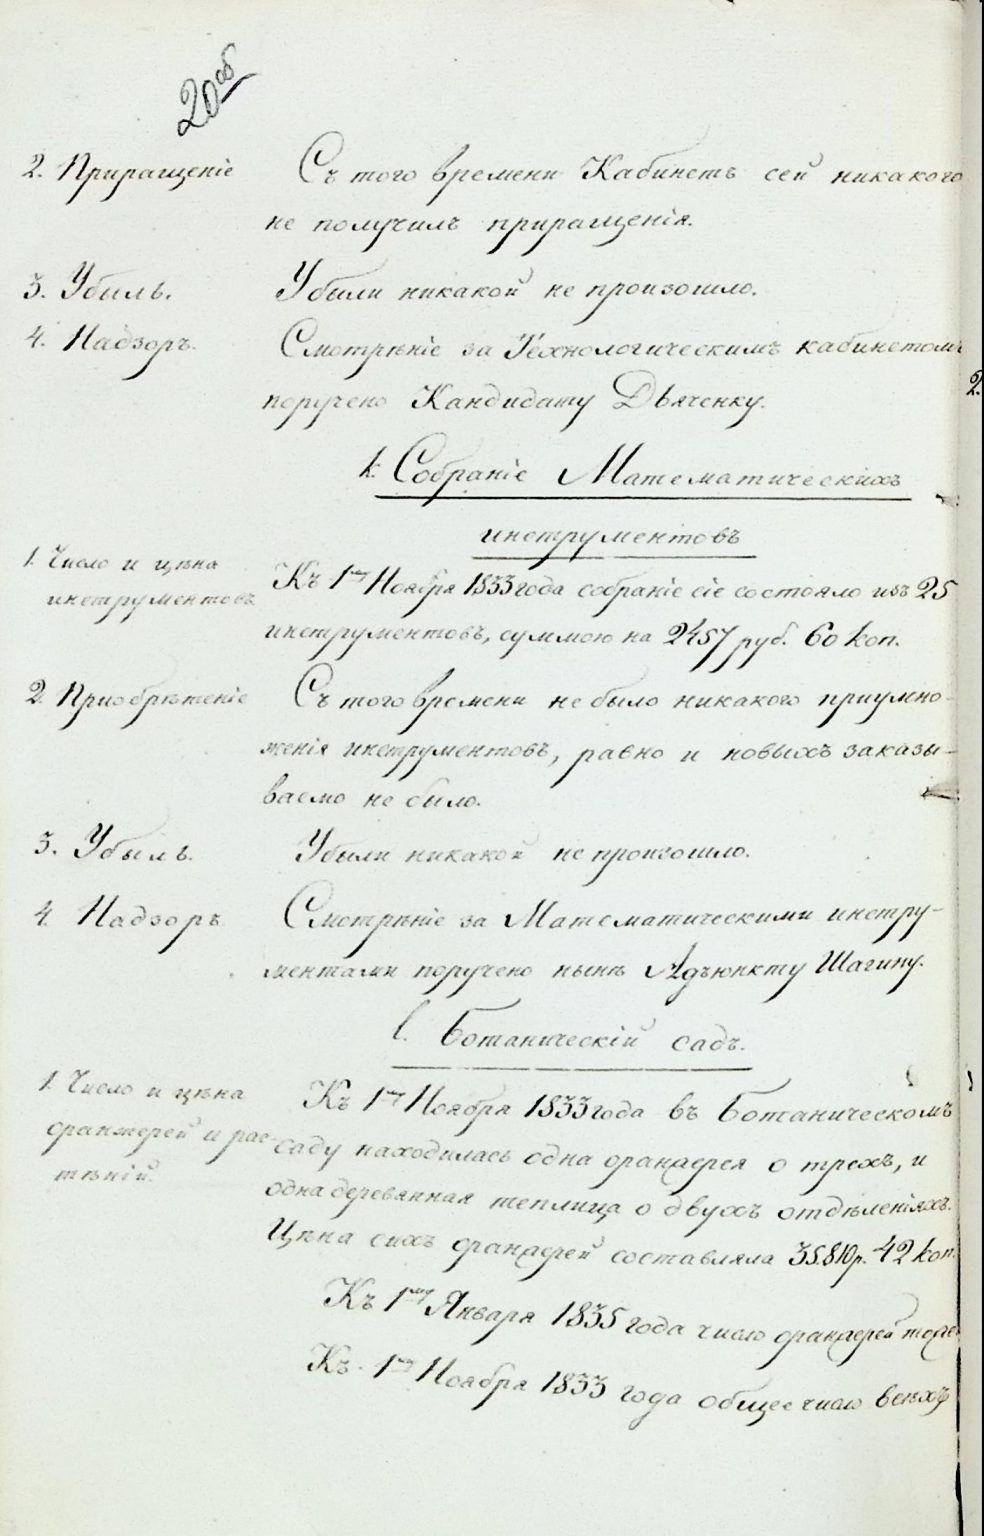 20об
2. Приращеніе
Съ того времени Кабинетъ сей никакого
не получилъ приращенія.
3. Убыль.
Убыли никакой не произошло.
4. Надзоръ.
Смотрѣніе за Технологическимъ кабинетомъ
поручено Кандидату Дьяченку.
k. Собраніе Математическихъ
инструментовъ
1. Число и цѣна
инструментовъ
Къ 1му Ноября 1833 года собраніе сіе состояло изъ 25
инструментовъ, суммою на 2457 руб. 60 коп.
2. Приобрѣтеніе
Съ того времени не было никакого приумно-
женія инструментовъ, равно и новыхъ заказы-
ваемо не было.
3. Убыль.
Убыли никакой не произошло.
4. Надзоръ
Смотрѣніе за Математическими инстру-
ментами поручено нынѣ Адъюнкту Шагину.
l. Ботаническій садъ.
1. Число и цѣна
оранжерей и рас-
тѣній.
Къ 1му Ноября 1833 года въ Ботаническомъ
саду находилась одна оранжерея о трехъ, и
одна деревянная теплица о двухъ отдѣленіяхъ.
Цѣна сихъ оранжерей составляла 35.810 р. 42 коп.
Къ 1му Января 1835 года число оранжерей тоже
Къ 1му Ноября 1833 года общее число всѣхъ
2.